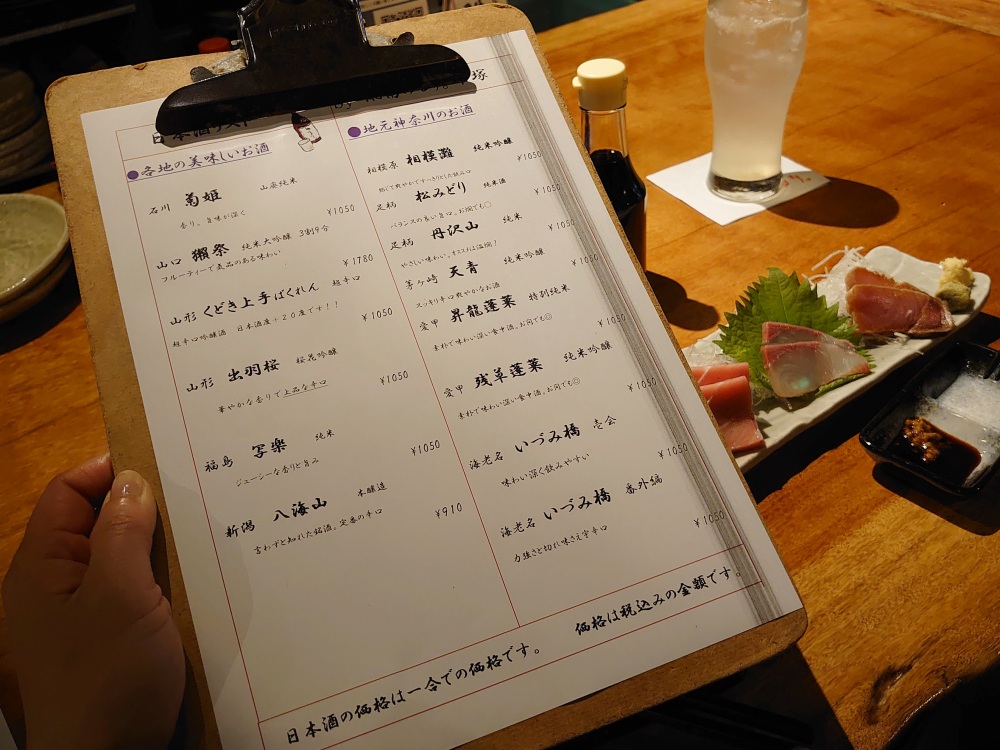 日本酒リスト
塚
●各地の美味しいお酒
石川 菊姫 山廃純米
香り。旨味が深く ¥1050
山口 獺祭 純米大吟醸 3割9分
フルーティーで気品のある味わい ¥1780
山形 くどき上手ばくれん 超辛口
超辛口吟醸酒 日本酒度+20度です!! ¥1050
山形 出羽桜 桜花吟醸
華やかな香りで上品な辛口 ¥1050
福島 写楽 純米
ジューシーな香りと旨み ¥1050
新潟 八海山 本醸造
言わずと知れた銘酒。定番の辛口 ¥910
●地元神奈川のお酒
相模原 相模灘 純米吟醸
¥1050
足柄 松みどり 純米酒
バランスの良い旨口。お燗でも◎ ¥1050
足柄 丹沢山 純米
やさしい味わい。オススメはお燗! ¥1050
茅ヶ崎 天青 純米吟醸
スッキリ辛口爽やかなお酒 ¥1050
愛甲 昇龍蓬莱 特別純米
素朴で味わい深い食中酒。お燗でも◎ ¥1050
愛甲 残草蓬莱 純米吟醸
素朴で味わい深い食中酒。お燗でも◎ ¥1050
海老名 いづみ橋 壱会
味わい深く飲みやすい ¥1050
海老名 いづみ橋 番外編
力強さと切れ味さえ字辛口 ¥1050
日本酒の価格は一合での価格です。 価格は税込みの金額です。